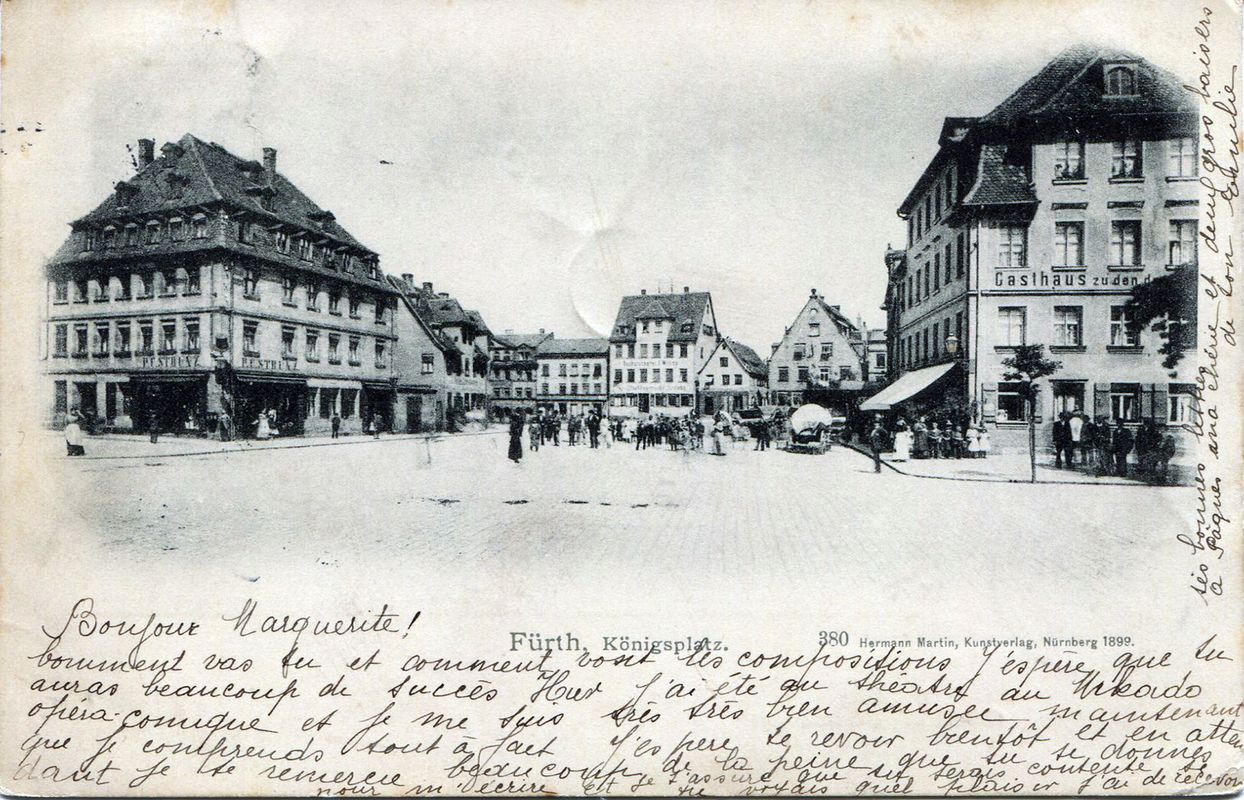 BESTELZ
BESTELZ
Gasthaus zu den d
Bonjour Marguerite!
Fürth, Königsplatz.
380 Hermann Martin, Kunstverlag, Nürnberg 1899.
Comment vas tu et comment vont tes compositions J'espère que tu
auras beaucoup de succès Hier J'ai été au théatre au Mikado
opéra-comique et je me suis très très bien amusée maintenant
que je comprends tout à fait J'espère te revoir bientôt et en atten
dant je te remercie beaucoup de la peine que tu te donnes
pour m'écrire Et je t'assure que tu serais contente si
tu voyais quel plaisir j'ai de recevoir
tes bonnes lettres
à Pâques ma chérie et deux gros baisers
de ton Emilie